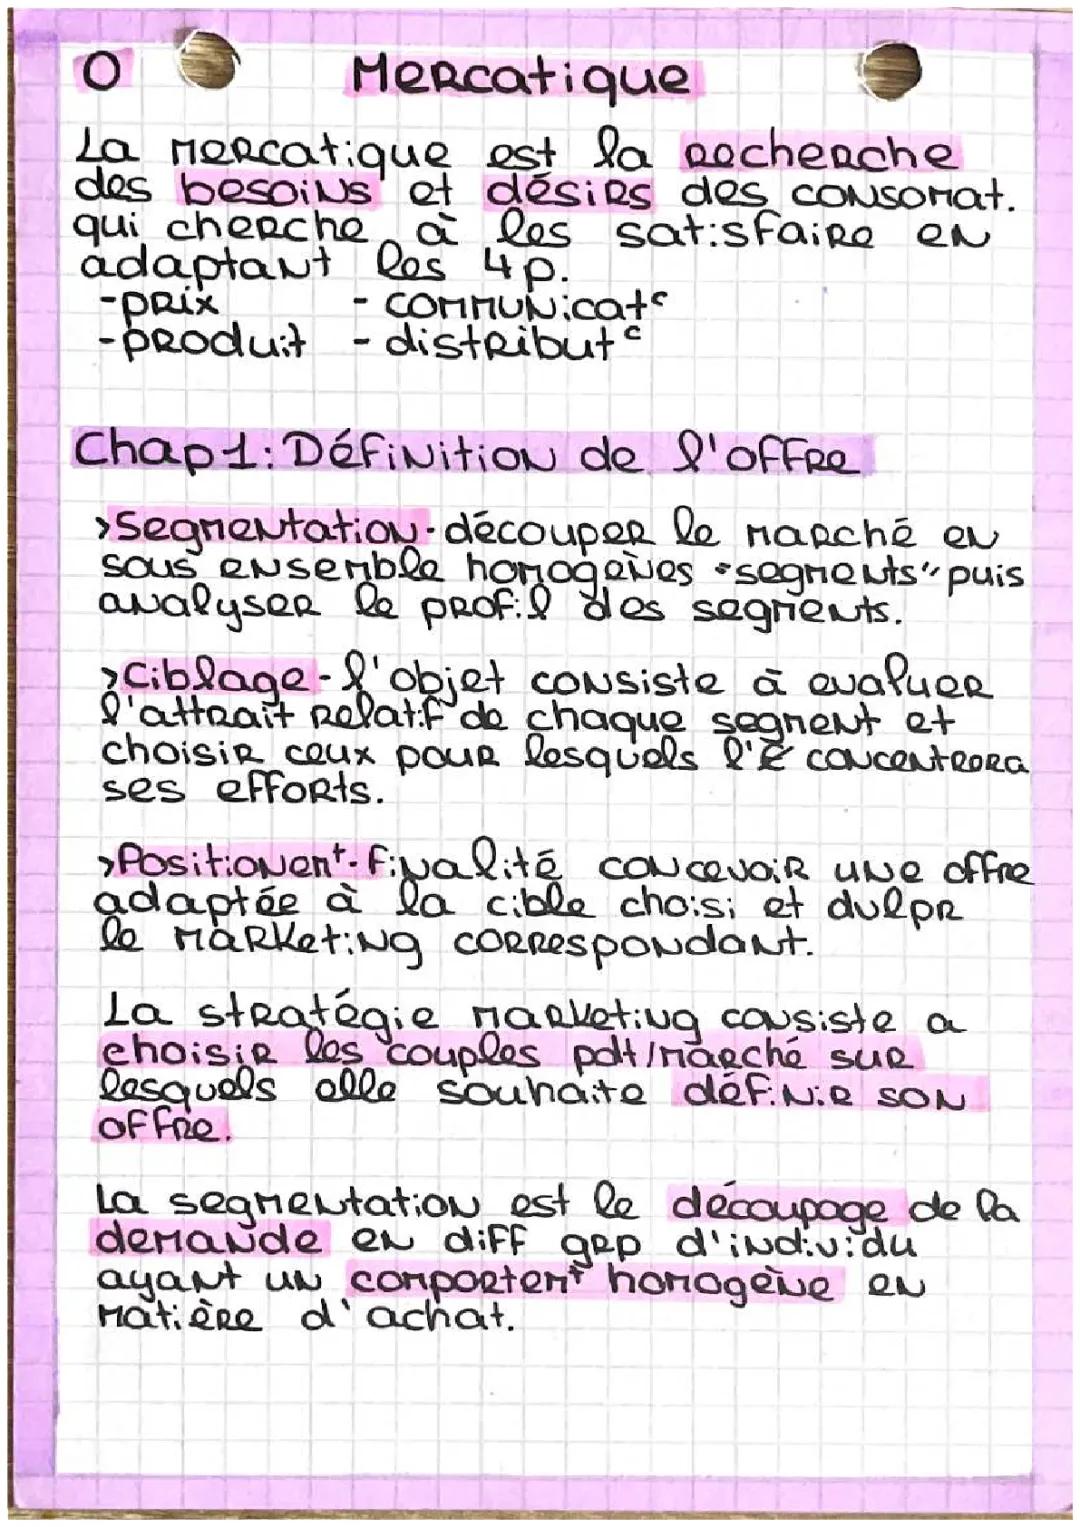 O Mercatique
La mercatique est la recherche
des besoins et désirs des consomat.
qui cherche à les satisfaire en
adaptant les 4p.
-prix - communicat°
-produit - distribut°
Chap1: Définition de l'offre
>Segmentation- découper le marché en
sous ensemble homogènes "segments" puis
analyser le profil des segments.
>Ciblage- l'objet consiste à evaluer
l'attrait relatif de chaque segment et
choisir ceux pour lesquels l'E concentrera
ses efforts.
>Positionent- finalité concevoir une offre
adaptée à la cible choisi et dvlpr
le marketing correspondant.
La stratégie marketing consiste a
choisir les couples pdt/marché sur
lesquels elle souhaite définir son
offre.
La segmentation est le découpage de la
demande en diff grp d'individu
ayant un comportemt homogène en
matière d'achat.